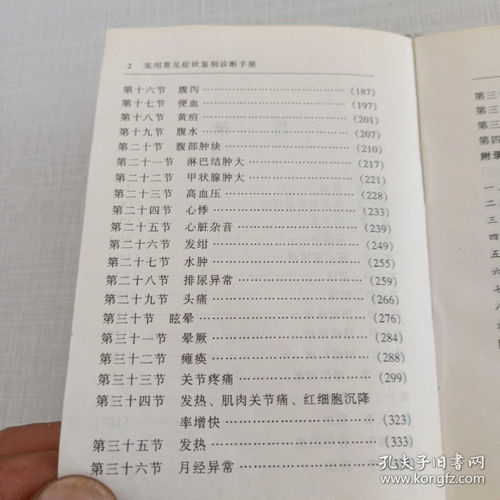 2 实用常见症状鉴别诊断手册
第十六节 腹泻 (187)
第十七节 便血 (197)
第十八节 黄疸 (201)
第十九节 腹水 (207)
第二十节 腹部肿块 (210)
第二十一节 淋巴结肿大 (217)
第二十二节 甲状腺肿大 (221)
第二十三节 高血压 (228)
第二十四节 心悸 (233)
第二十五节 心脏杂音 (239)
第二十六节 发绀 (249)
第二十七节 水肿 (255)
第二十八节 排尿异常 (259)
第二十九节 头痛 (266)
第三十节 眩晕 (276)
第三十一节 晕厥 (284)
第三十二节 瘫痪 (288)
第三十三节 关节疼痛 (299)
第三十四节 发热、肌肉关节痛、红细胞沉降
率增快 (323)
第三十五节 发热 (333)
第三十六节 月经异常
第三
第三
第三
第四
附录
一
二
三
四
五
六
七
八
孔夫子旧书网
www.kongfz.com